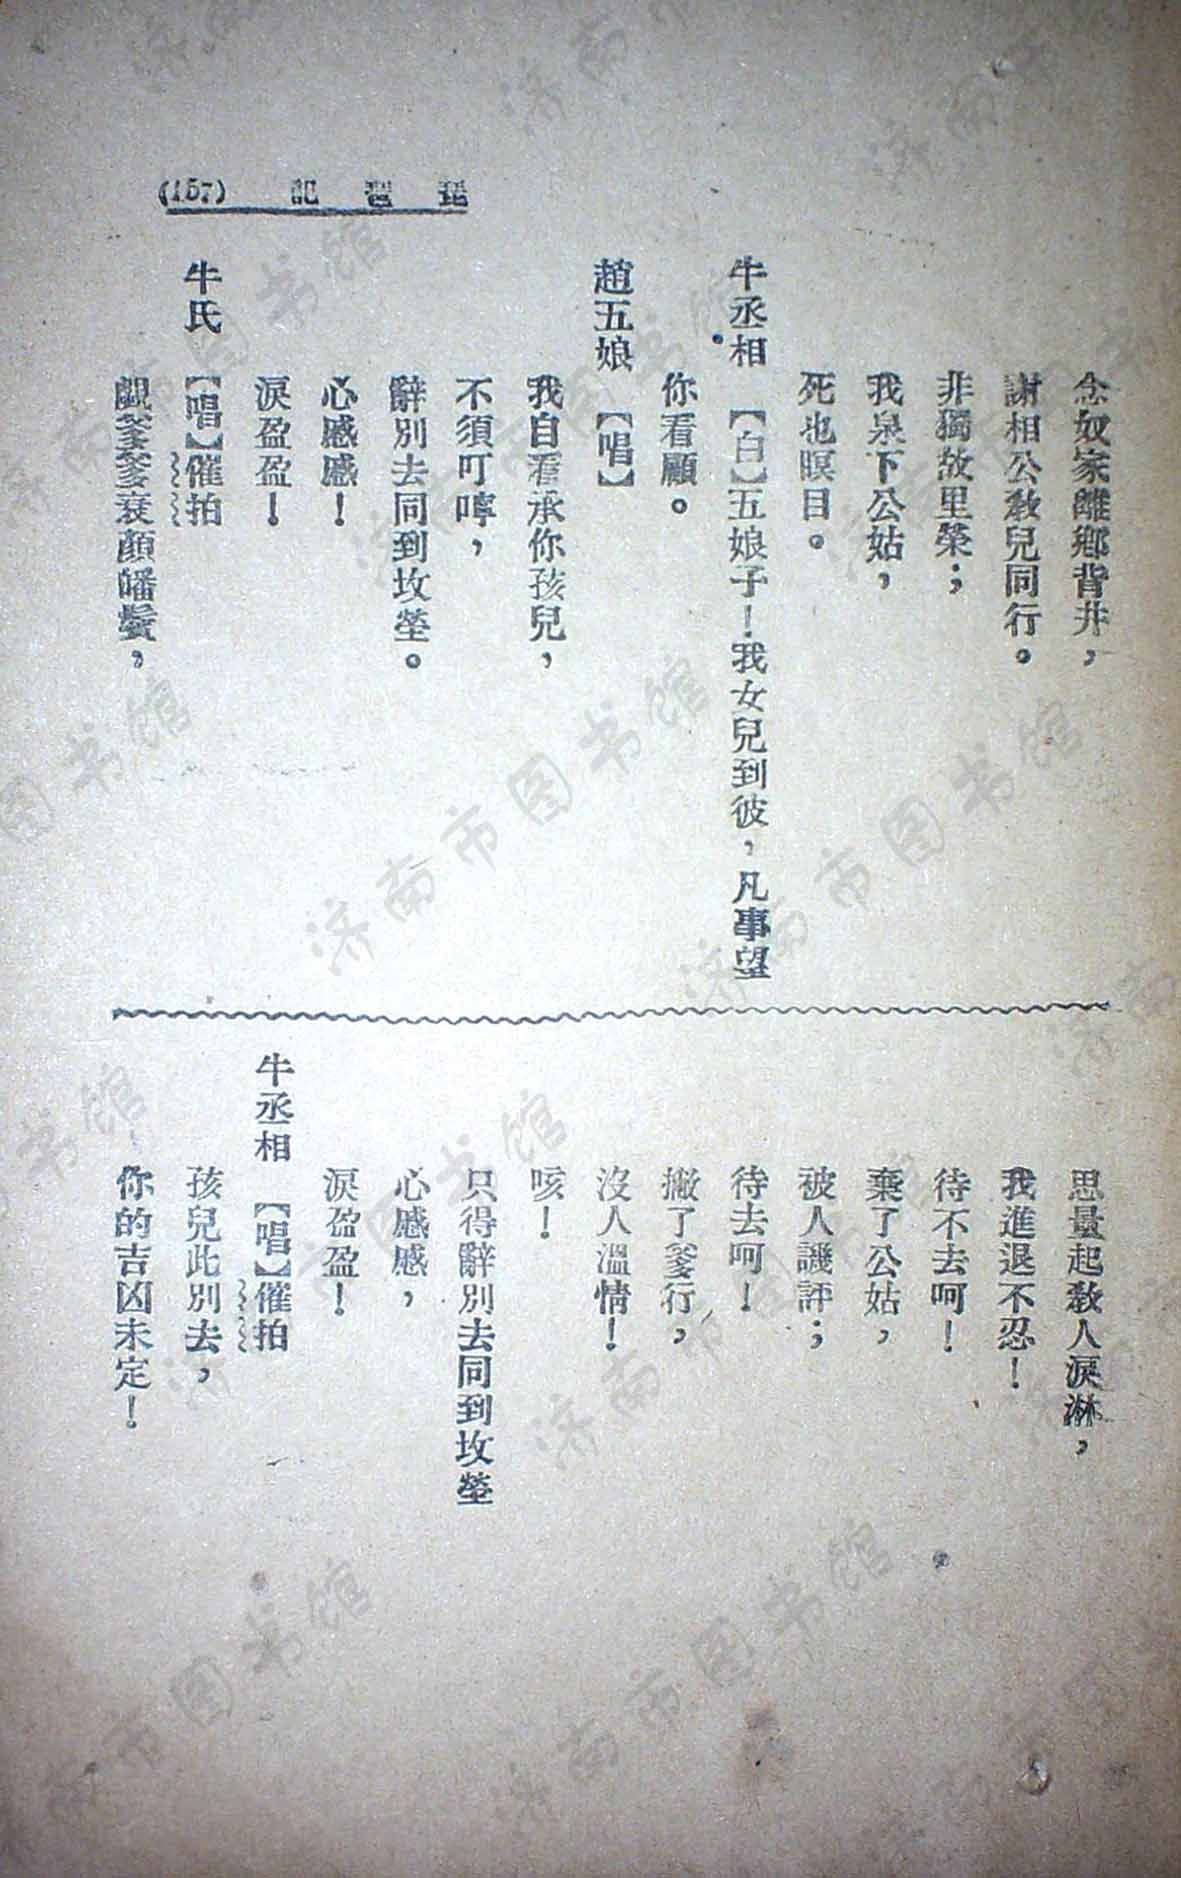 琵琶記 (157)
念奴家離鄉背井，
謝相公教兒同行。
非獨故里榮；
我泉下公姑，
死也瞑目。
牛丞相 【白】五娘子！我女兒到彼，凡事望
你看顧。
趙五娘 【唱】
我自看承你孩兒，
不須叮嚀，
辭別去同到坟塋。
心慼慼！
淚盈盈！
牛氏 【唱】催拍
覷爹爹衰顏皤鬢，
思量起教人淚淋，
我進退不忍！
待不去呵！
棄了公姑，
被人譏評；
待去呵！
撇了爹行，
沒人溫情！
咳！
只得辭別去同到坟塋
心慼慼，
淚盈盈！
牛丞相 【唱】催拍
孩兒此別去，
你的吉凶未定！
济南市图书馆